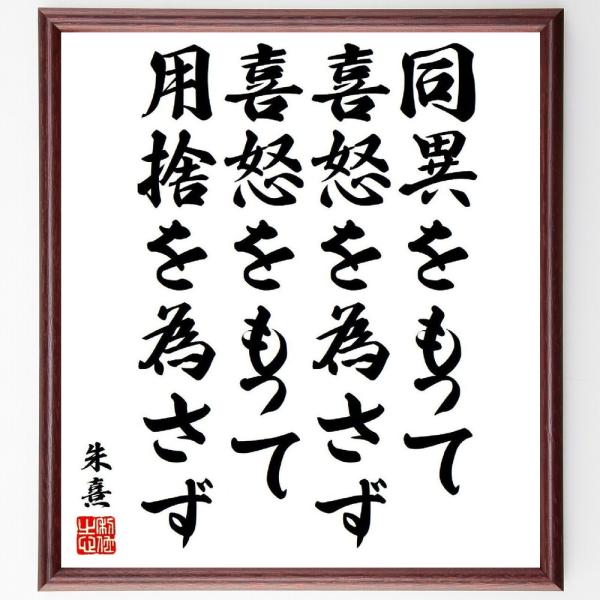 同異をもって
喜怒を為さず
喜怒をもって
用捨を為さず
朱熹